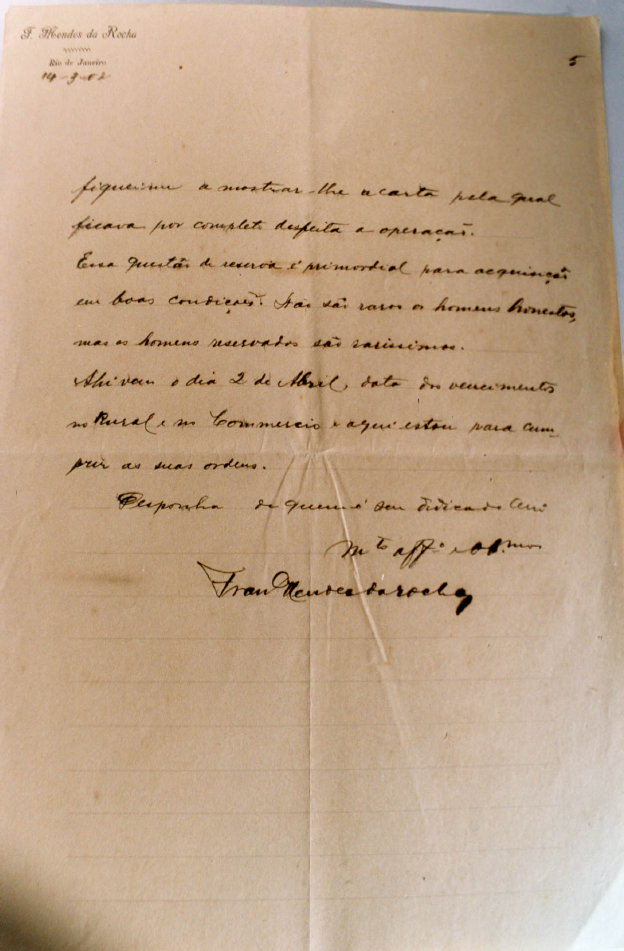 F. Mendes da Rocha
Rio de Janeiro
14-3-02
5
a mostrar-lhe a carta pela qual
ficava por completo desfeita a operação.
Essa questão de reserva é primordial para acquisição
em boas condições. Não são raros os homens honestos,
mas os homens reservados são rarissimos.
Ahi vem o dia 2 de Abril, data dos vencimentos
no Rural e no Commercio e aqui estou para cum-
prir as suas ordens.
Disponha de quem é seu
Mto affo e
Fran Mendes da Rocha